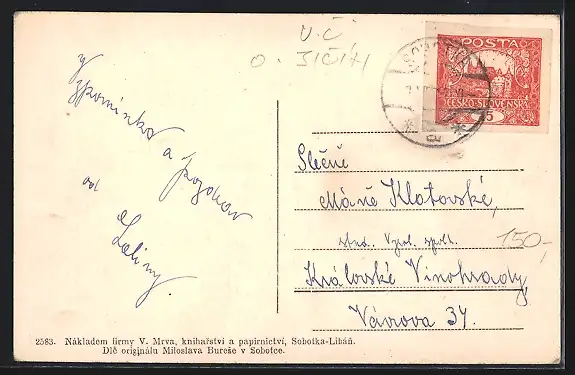 V.Č
O. JIČÍN
SOBOTKA
POSTA
ČESKO-SLOVENSKÁ
15
Vzpomínka
a pozdrav
od
Slečně
Máně Klatovské,
stud. Vyš. spol.
150,-
Královské Vinohrady,
Vávrova 34.
2583. Nákladem firmy V. Mrva, knihařství a papírnictví, Sobotka-Libáň.
Dle originálu Miloslava Bureše v Sobotce.